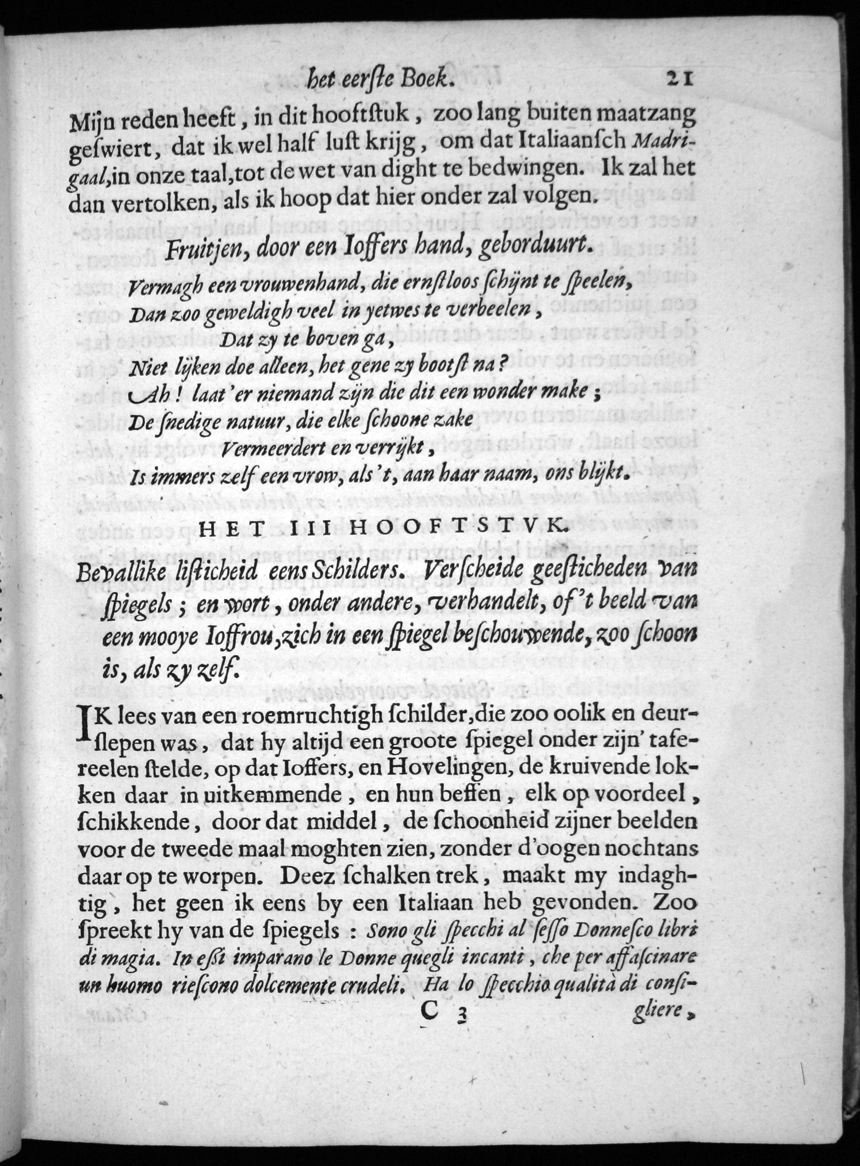 het eerſte Boek. 21
Mijn reden heeft, in dit hooftſtuk, zoo lang buiten maatzang
geſwiert, dat ik wel half luſt krijg, om dat Italiaanſch Madri-
gaal,in onze taal,tot de wet van dight te bedwingen. Ik zal het
dan vertolken, als ik hoop dat hier onder zal volgen.
Fruitjen, door een Ioffers hand, geborduurt.
Vermagh een vrouwenhand, die ernſtloos ſchijnt te ſpeelen,
Dan zoo geweldigh veel in yetwes te verbeelen,
Dat zy te boven ga,
Niet lijken doe alleen, het gene zy bootſt na?
Ah! laat 'er niemand zijn die dit een wonder make;
De ſnedige natuur, die elke ſchoone zake
Vermeerdert en verrijkt,
Is immers zelf een vrow, als 't, aan haar naam, ons blijkt.
HET III HOOFTSTVK.
Bevallike liſticheid eens Schilders. Verſcheide geeſticheden van
ſpiegels; en wort, onder andere, verhandelt, of 't beeld van
een mooye Ioffrou,zich in een ſpiegel beſchouwende, zoo ſchoon
is, als zy zelf.
IK lees van een roemruchtigh ſchilder,die zoo oolik en deur-
ſlepen was, dat hy altijd een groote ſpiegel onder zijn' tafe-
reelen ſtelde, op dat Ioffers, en Hovelingen, de kruivende lok-
ken daar in uitkemmende, en hun beffen, elk op voordeel,
ſchikkende, door dat middel, de ſchoonheid zijner beelden
voor de tweede maal moghten zien, zonder d'oogen nochtans
daar op te worpen. Deez ſchalken trek, maakt my indagh-
tig, het geen ik eens by een Italiaan heb gevonden. Zoo
ſpreekt hy van de ſpiegels: Sono gli ſpecchi al ſeſſo Donneſco libri
di magia. In eſſi imparano le Donne quegli incanti, che per affaſcinare
un huomo rieſcono dolcemente crudeli. Ha lo ſpecchio qualità di conſi-
C 3 gliere,